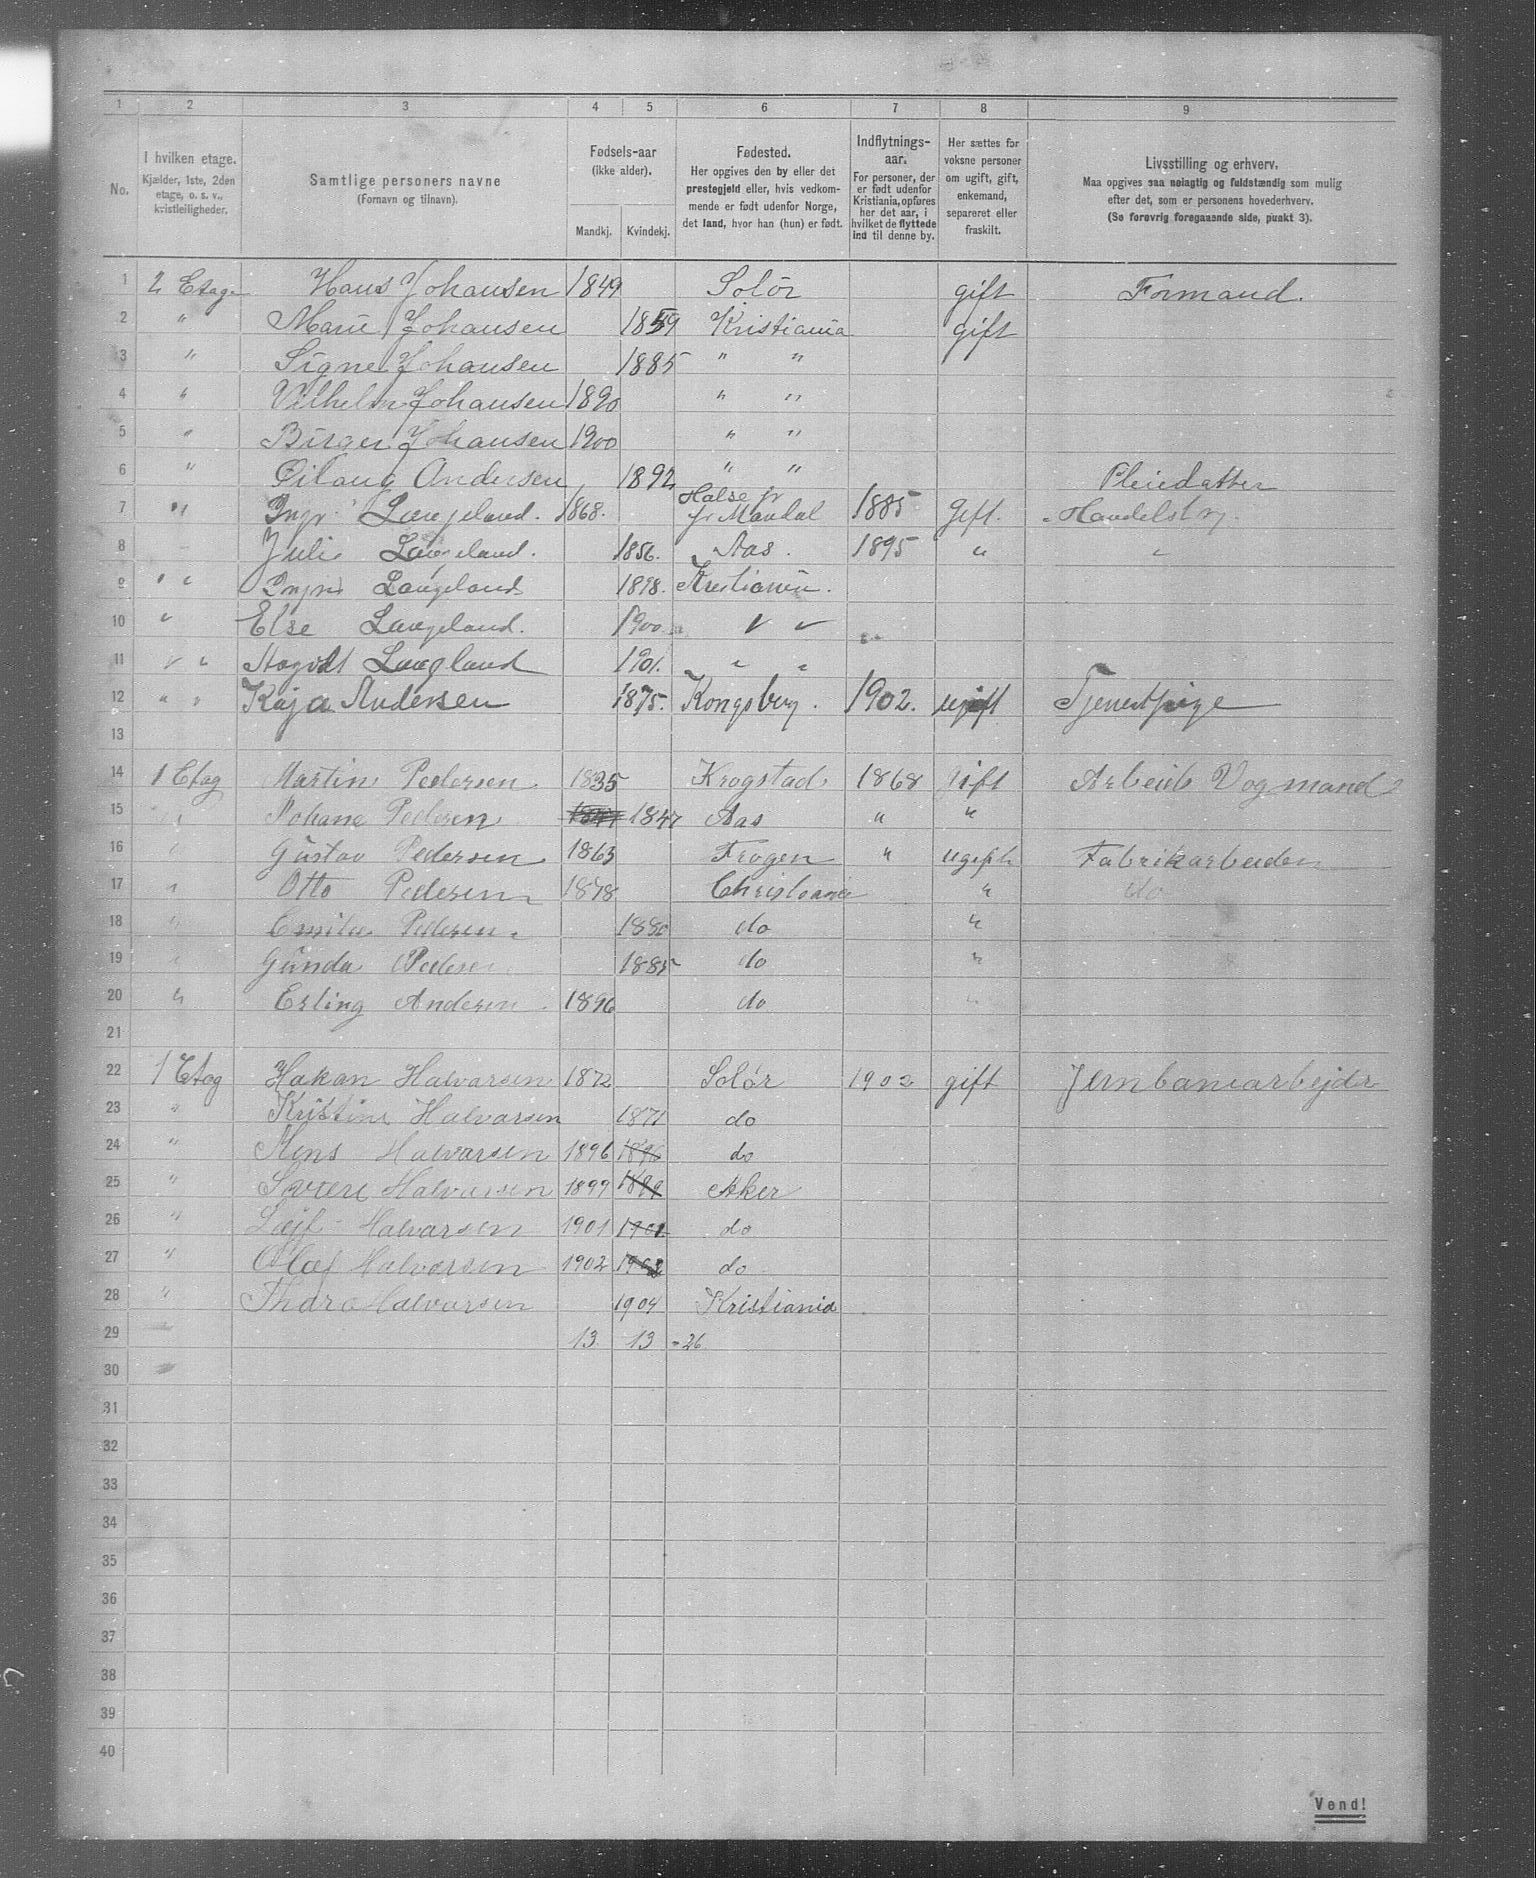 1 2 3 4 5 6 7 8 9
No.
I hvilken etage.
Kjælder, 1ste, 2den
etage, o. s. v.,
kvistleiligheder.
Samtlige personers navne
(Fornavn og tilnavn).
Fødsels-aar
(ikke alder).
Mandkj. Kvindekj.
Fødested.
Her opgives den by eller det
prestegjeld eller, hvis vedkom-
mende er født udenfor Norge,
det land, hvor han (hun) er født.
Indflytnings-
aar.
For personer, der
er født udenfor
Kristiania, opføres
her det aar, i
hvilket de flyttede
ind til denne by.
Her sættes for
voksne personer
om ugift, gift,
enkemand,
separeret eller
fraskilt.
Livsstilling og erhverv.
Maa opgives saa nøiagtig og fuldstændig som mulig
efter det, som er personens hovederhverv.
(Se forøvrig foregaaende side, punkt 3).
1 2 Etage Hans Johansen 1849 Solör gift Formand.
2 " Marie Johansen 1859 Kristiania gift
3 " Signe Johansen 1885 " "
4 " Vilhelm Johansen 1890 " "
5 " Birger Johansen 1900 " "
6 " Andersen 1892 " " Pleiedatter
7 " Langeland. 1868. Halse pr Mandal 1885 Gift. Handelsbrg.
8 Juli Langeland. 1856. Aas. 1895 " "
9 " " Langeland 1898. Kristiania.
10 " Else Langeland. 1900 " "
11 " " Langland 1901. " "
12 " " Kaja Andersen 1875. Kongsberg. 1902. ugift Tjenestpige
13
14 1 Etag Martin Pedersen 1835 Krogstad 1868 Gift Arbeids Vogmand
15 " Johane Pedersen 1847 Aas " "
16 " Gustav Pedersen 1863 Frogen " ugift Fabrikarbeider
17 " Otto Pedersen 1878 Christiania " do
18 " Emilie Pedersen 1880 do "
19 " Gunda Pedersen 1885 do "
20 " Erling Andersen 1896 do "
21
22 1 Etag Hakan Halvarsen 1872 Solør 1902 gift Jernbanearbejder
23 " Kristine Halvarsen 1871 do
24 " Mens Halvarsen 1896 1896 do
25 " Sverre Halvarsen 1899 1899 Aker
26 " Lejf Halvarsen 1901 1901 do
27 " Olaf Halvorsen 1902 1902 do
28 " Thora Halvarsen 1904 Kristiania
29 13 13 = 26
30 "
31
32
33
34
35
36
37
38
39
40
Vend!